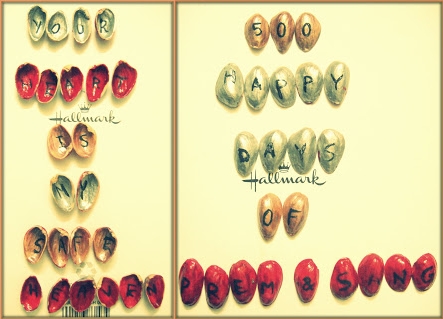 YOUR
HEART
Hallmark
IS
MY
SAFE
HEAVEN
500
HAPPY
DAYS
Hallmark
OF
PREM & SANG